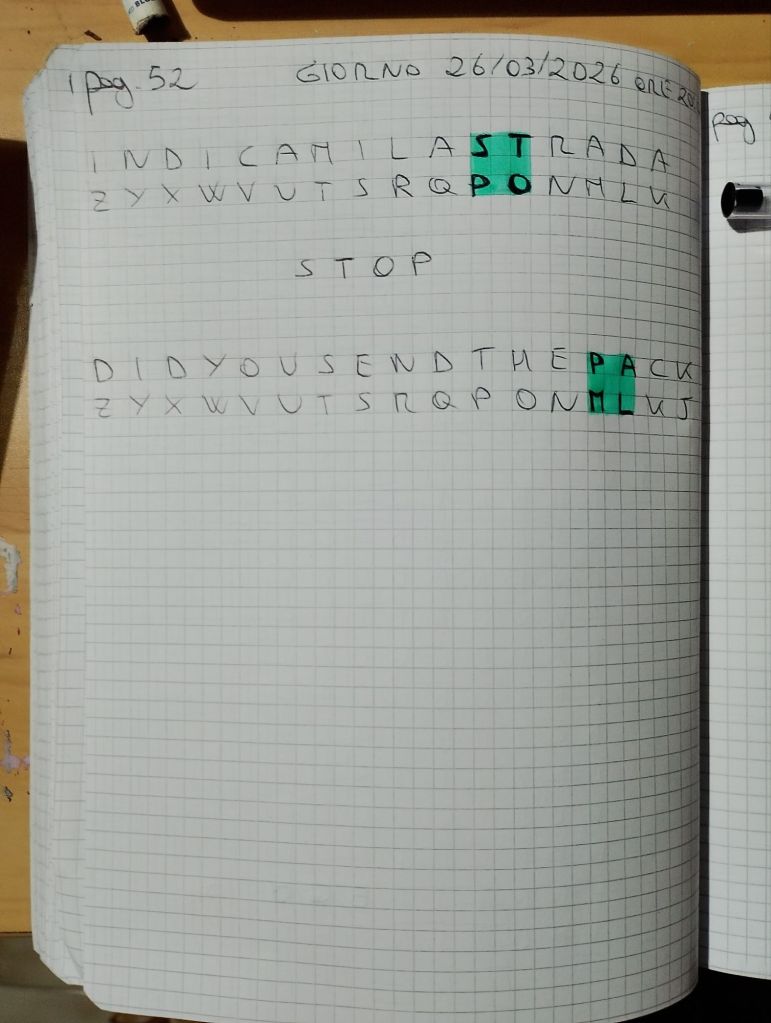 pag. 52 GIORNO 26/03/2026 ORE
INDICAMILASTRADA
ZYXWVUTSRQPONMLK
STOP
DIDYOUSENDTHEPACK
ZYXWVUTSRQPONMLKJ
pag